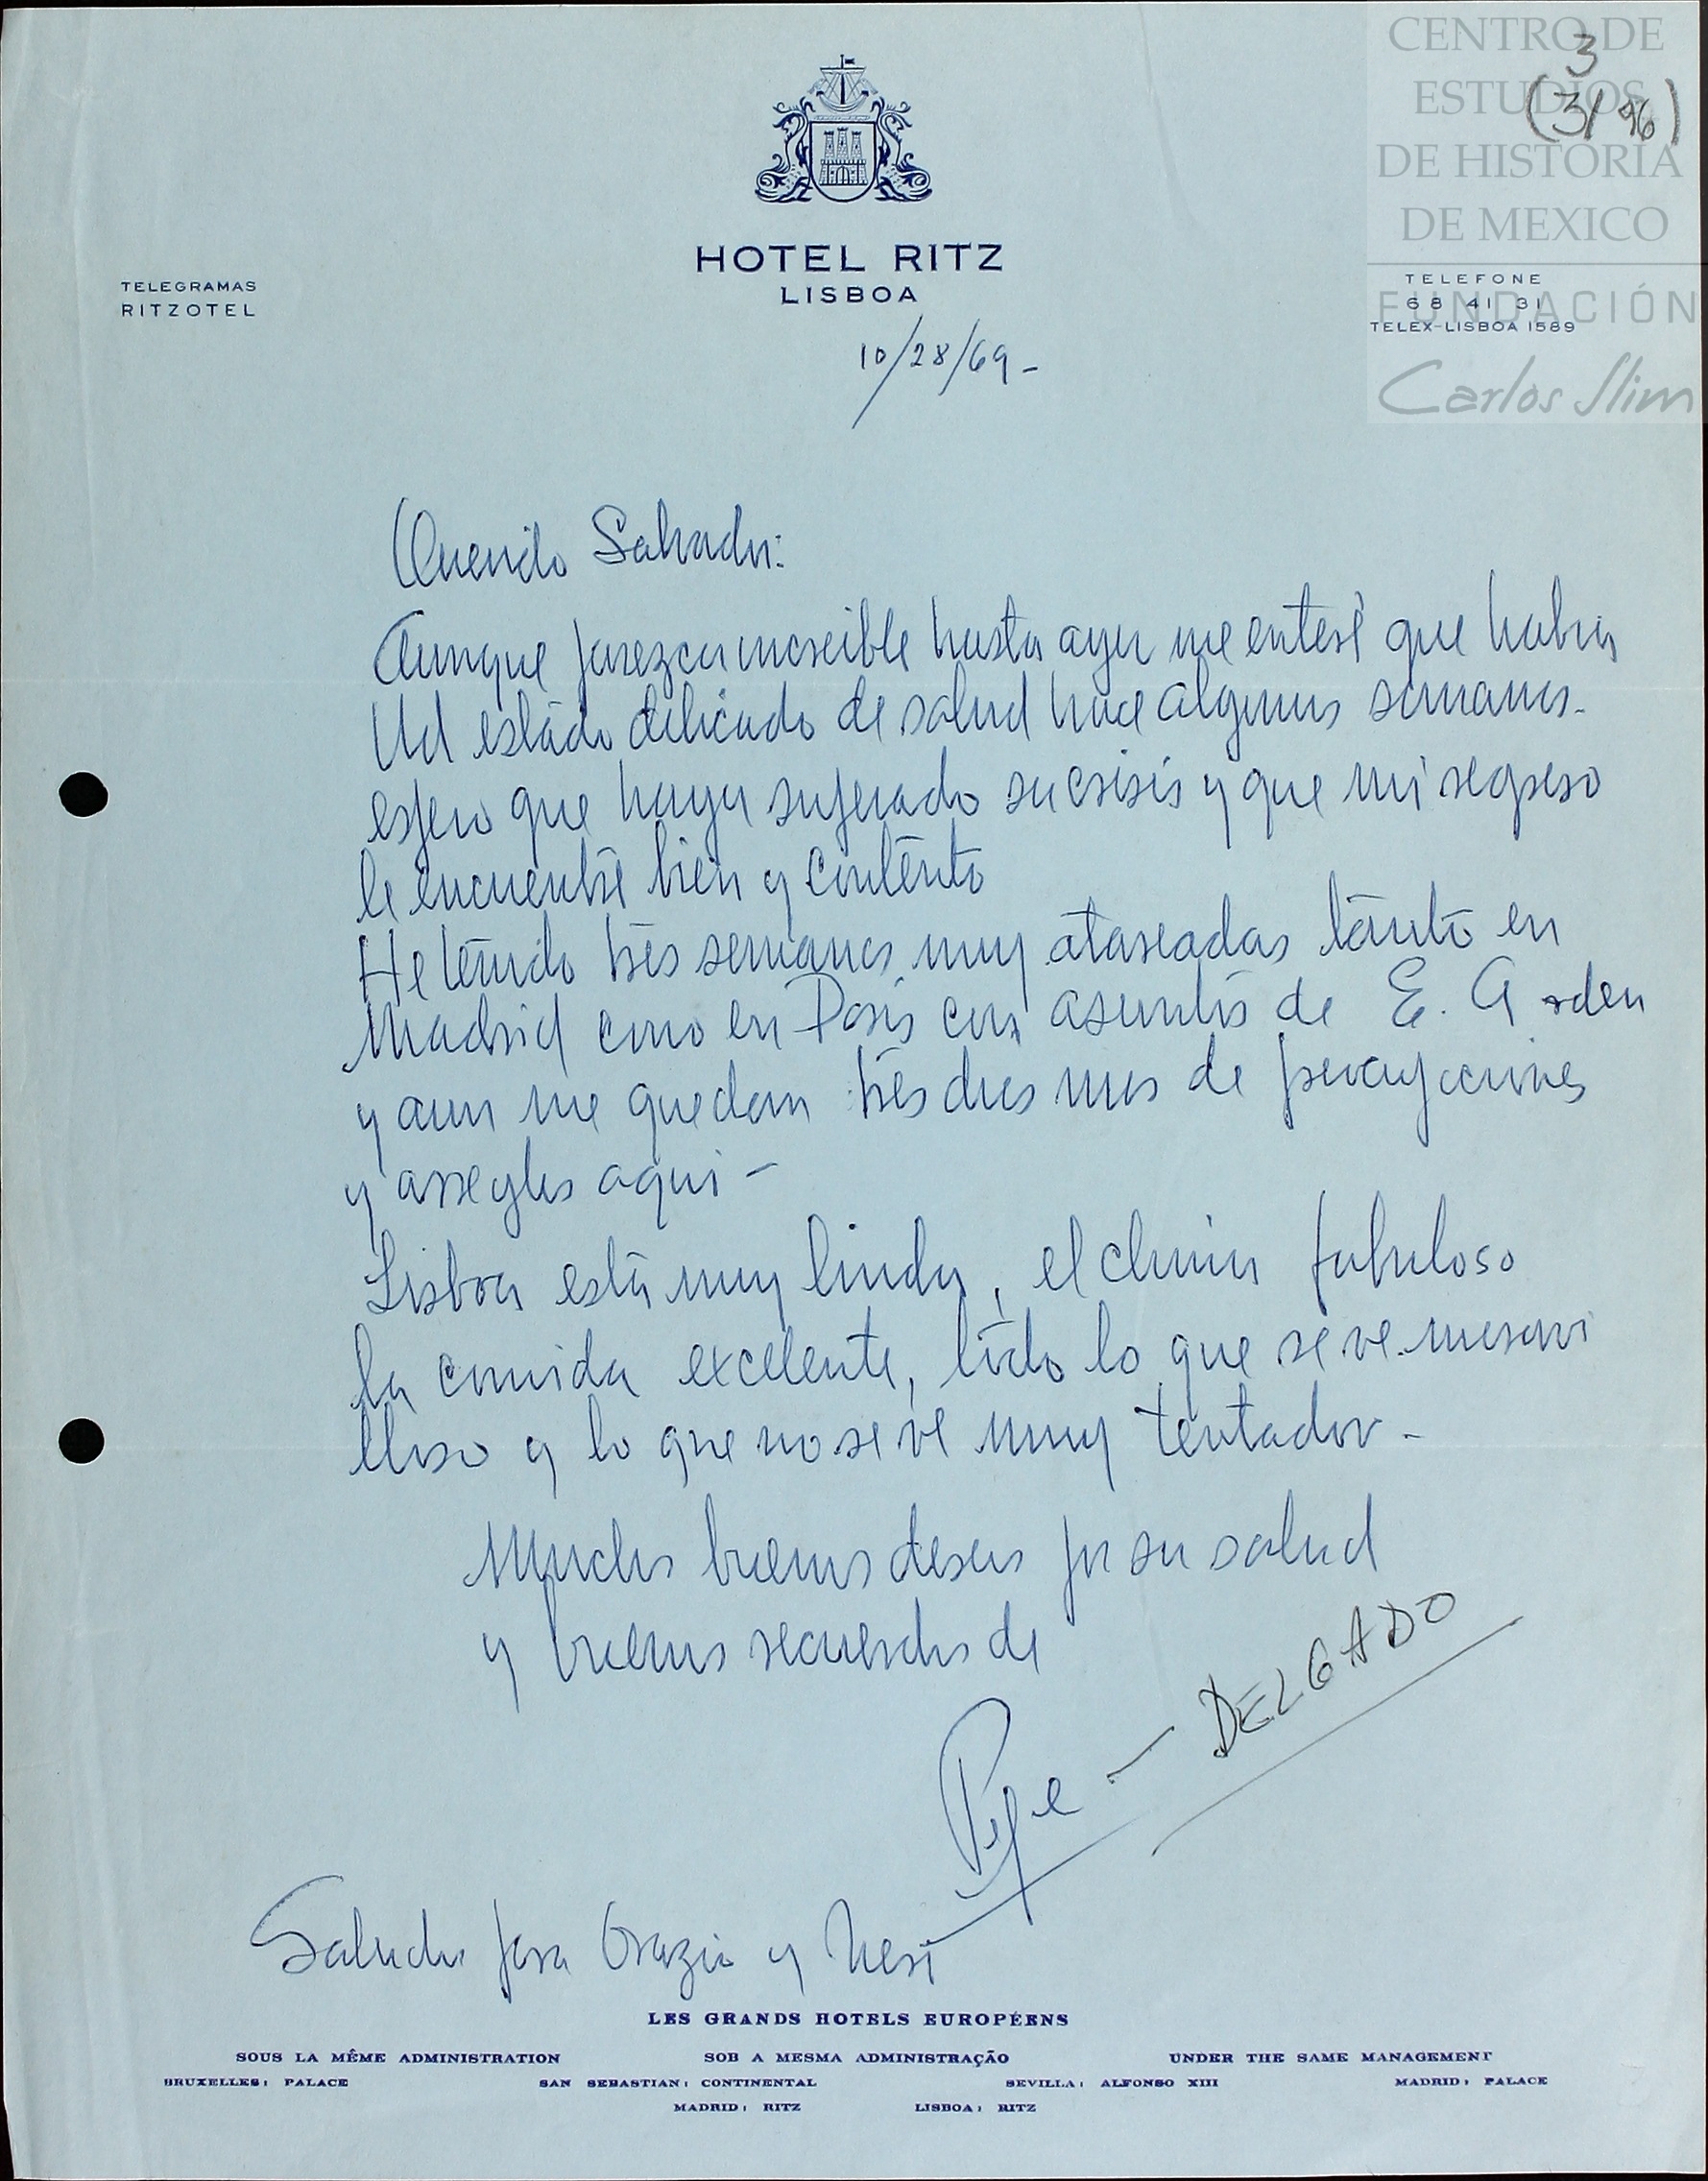 CENTRO DE
ESTUDIOS
DE HISTORIA
DE MEXICO
FUNDACIÓN
Carlos Slim
3
(3/96)
HOTEL RITZ
LISBOA
TELEGRAMAS
RITZOTEL
TELEFONE
68 41 31
TELEX-LISBOA 1589
10/28/69-
Querido Salvador:
Aunque parezca increible hasta ayer me enteré que habia
Ud estado delicado de salud hace algunas semanas.
espero que haya superado su crisis y que mi regreso
le encuentre bien y contento
He tenido tres semanas muy atareadas tanto en
Madrid como en Paris con asuntos de E. Arden
y aun me quedan tres dias mas de
y arreglos aqui -
Lisboa está muy linda, el clima fabuloso
la comida excelente, todo lo que se ve maravi
lloso y lo que no se ve muy tentador -
Muchos buenos deseos por su salud
y buenos recuerdos de
Pepe - DELGADO
Saludos para Orazio y
LES GRANDS HOTELS EUROPÉENS
SOUS LA MÊME ADMINISTRATION SOB A MESMA ADMINISTRAÇÃO UNDER THE SAME MANAGEMENT
BRUXELLES: PALACE SAN SEBASTIAN: CONTINENTAL SEVILLA: ALFONSO XIII MADRID: PALACE
MADRID: RITZ LISBOA: RITZ